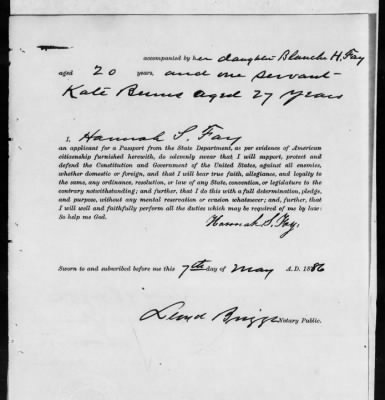 accompanied by her daughter Blanche H. Fay
aged 20 years, and one servant-
Kate Burns aged 27 years
I, Hannah S. Fay
an applicant for a Passport from the State Department, as per evidence of American
citizenship furnished herewith, do solemnly swear that I will support, protect and
defend the Constitution and Government of the United States, against all enemies,
whether domestic or foreign, and that I will bear true faith, allegiance, and loyalty to
the same, any ordinance, resolution, or law of any State, convention, or legislature to the
contrary notwithstanding; and further, that I do this with a full determination, pledge,
and purpose, without any mental reservation or evasion whatsoever; and, further, that
I will well and faithfully perform all the duties which may be required of me by law:
So help me God.
Hannah S. Fay.
Sworn to and subscribed before me this 7th day of May A.D. 1886
Lloyd Briggs Notary Public.